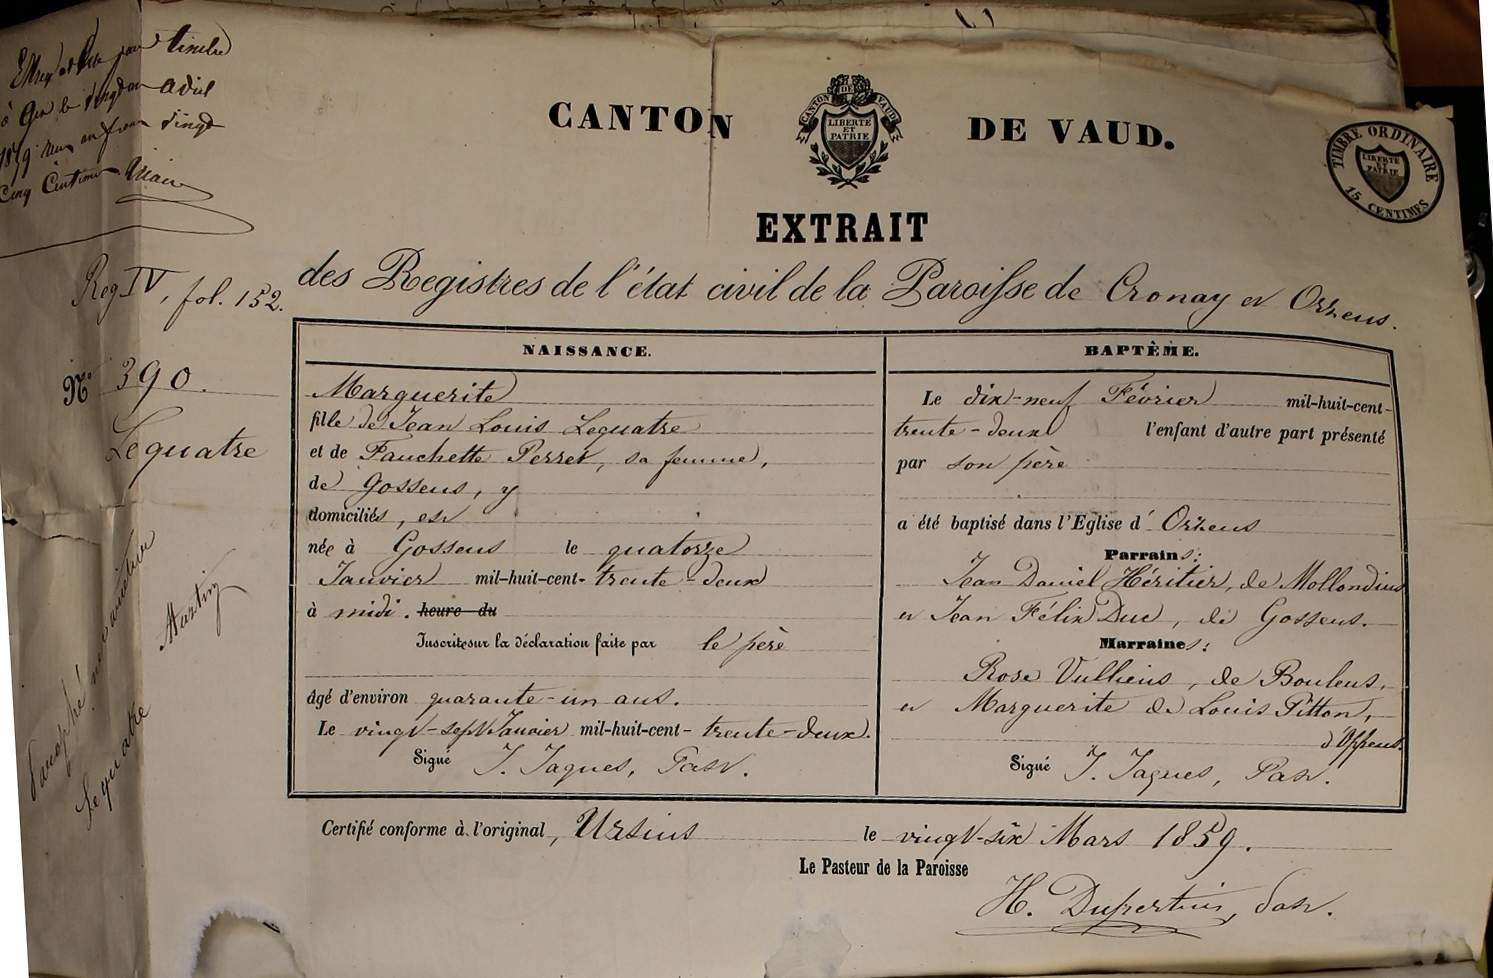 pour timbre
avril
Cinq Centimes
CANTON DE VAUD.
CANTON DE VAUD
LIBERTE
ET
PATRIE
TIMBRE ORDINAIRE
LIBERTE
ET
PATRIE
15 CENTIMES
EXTRAIT
des Registres de l'état civil de la Paroisse de Cronay et Orzens.
Reg IV, fol. 152.
No. 390.
Lequatre
NAISSANCE.
Marguerite
fille de Jean Louis Lequatre
et de Fanchette Perret, sa femme,
de Gossens, y
domiciliés, est
née à Gossens le quatorze
Janvier mil-huit-cent- trente-deux
à midi. heure du
Inscrite sur la déclaration faite par le père
âgé d'environ quarante-un ans.
Le vingt-sept Janvier mil-huit-cent- trente-deux.
Signé J. Jaques, Past.
BAPTÊME.
Le dix-neuf Février mil-huit-cent-
trente-deux l'enfant d'autre part présenté
par son père
a été baptisé dans l'Eglise d' Orzens
Parrains:
Jean Daniel Héritier, de Mollondins
et Jean Félix Duc, de Gossens.
Marraines:
Rose Vulliens, de Boulens,
et Marguerite de Louis Pitton,
d'Oppens.
Signé J. Jaques, Past.
Martin
Lequatre
Certifié conforme à l'original, Ursins le vingt-six Mars 1859.
Le Pasteur de la Paroisse
H. Dupertuis, Past.